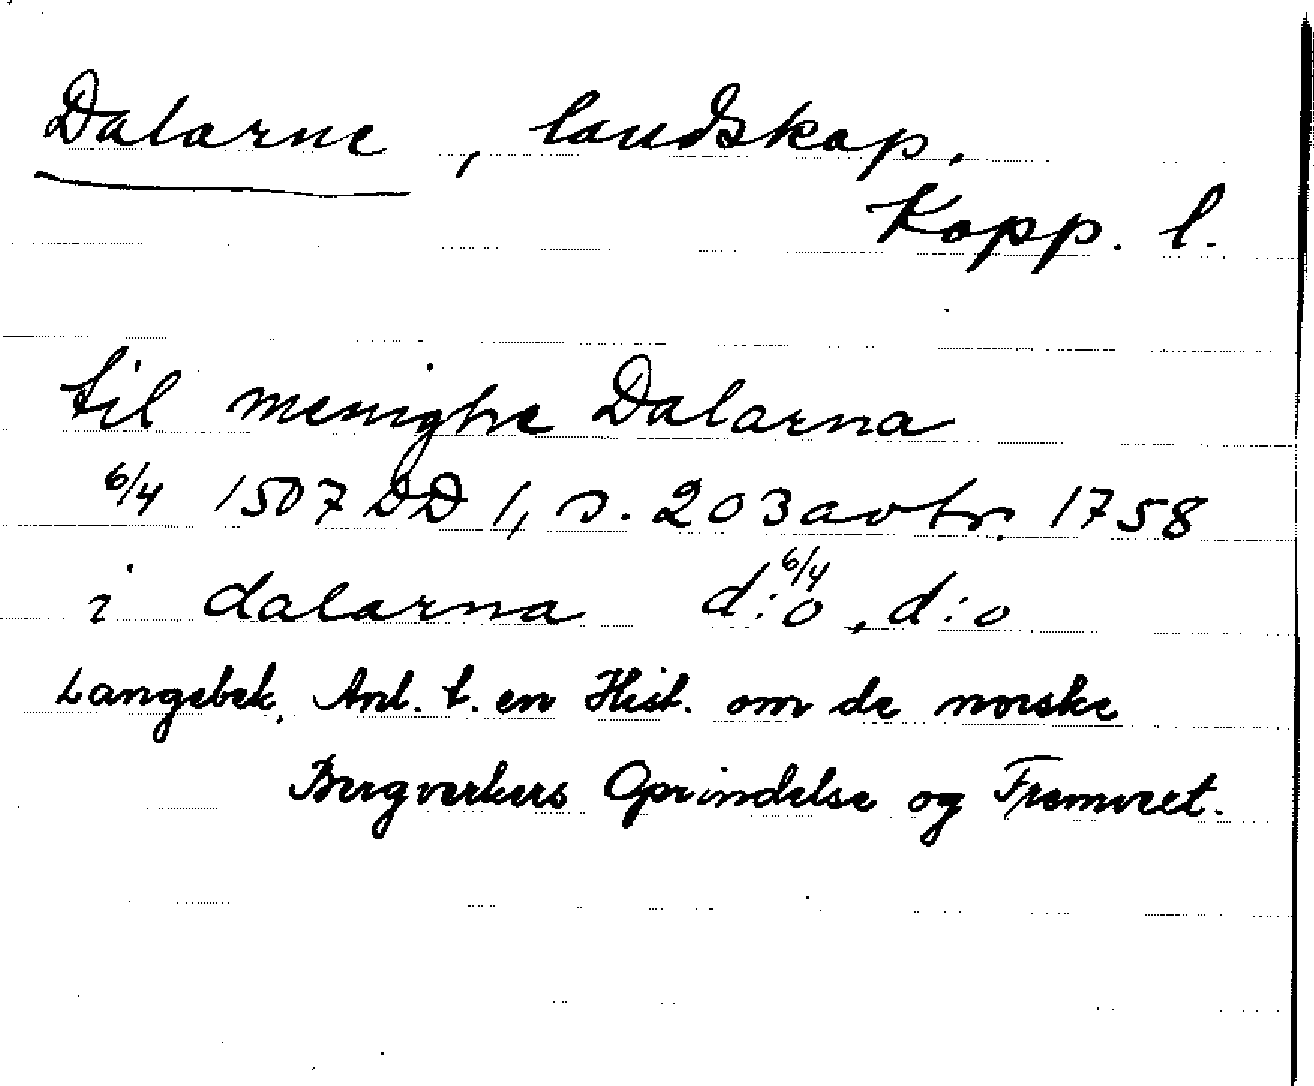 Dalarne, landskap,
Kopp. l.
til menighe Dalarna
6/4 1507 DD 1, s. 203 avtr. 1758
i dalarna d:o 6/4, d:o
Langebek, Anl. t. en Hist. om de norske
Bergverkers Oprindelse og Fremvext.